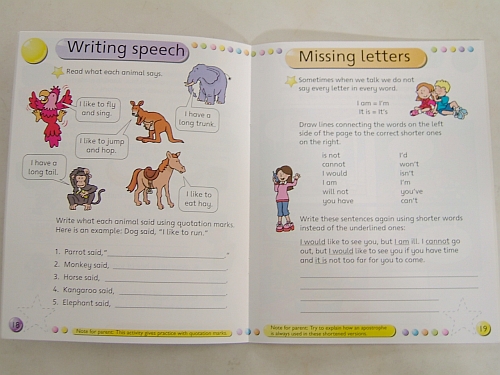 Writing speech
Read what each animal says.
I like to fly
and sing.
I have a
long trunk.
I like to jump
and hop.
I have a
long tail.
I like to
eat hay.
Write what each animal said using quotation marks.
Here is an example: Dog said, "I like to run."
1. Parrot said,"                    "
2. Monkey said,
3. Horse said,
4. Kangaroo said,
5. Elephant said,
18
Note for parent: This activity gives practice with quotation marks.
Missing letters
Sometimes when we talk we do not
say every letter in every word.
I am = I'm
It is = It's
Draw lines connecting the words on the left
side of the page to the correct shorter ones
on the right.
is not I'd
cannot won't
I would isn't
I am I'm
will not you've
you have can't
Write these sentences again using shorter words
instead of the underlined ones:
I would like to see you, but I am ill. I cannot go
out, but I would like to see you if you have time
and it is not too far for you to come.
Note for parent: Try to explain how an apostrophe
is always used in these shortened versions.
19